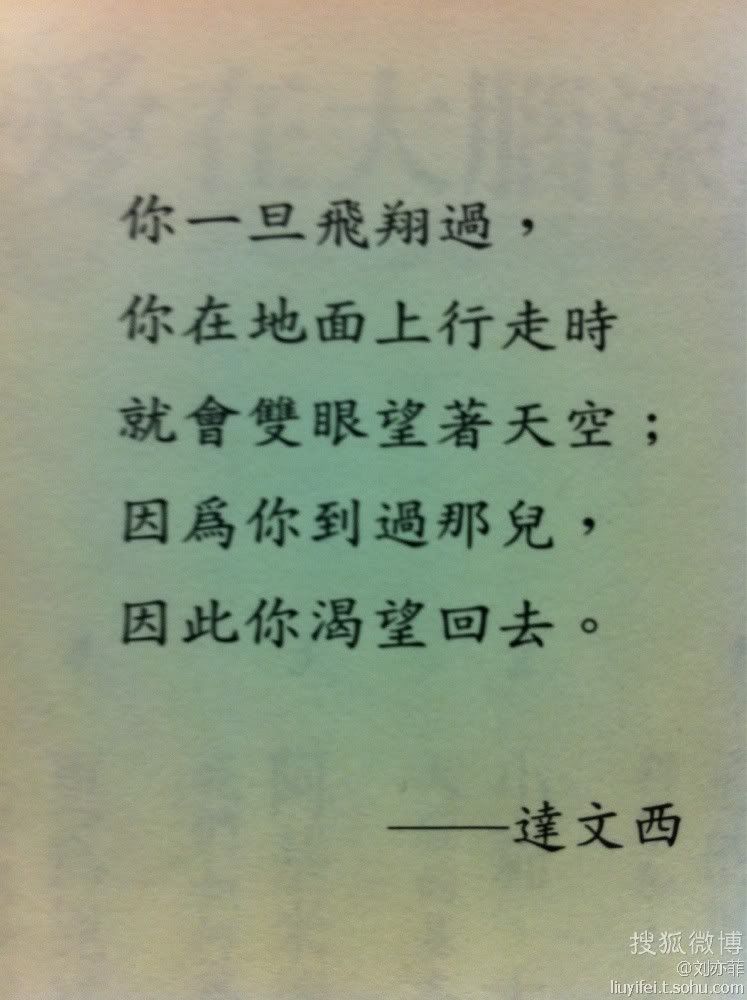 你一旦飛翔過，
你在地面上行走時
就會雙眼望著天空；
因爲你到過那兒，
因此你渴望回去。
——達文西
搜狐微博
@刘亦菲
liuyifei.t.sohu.com